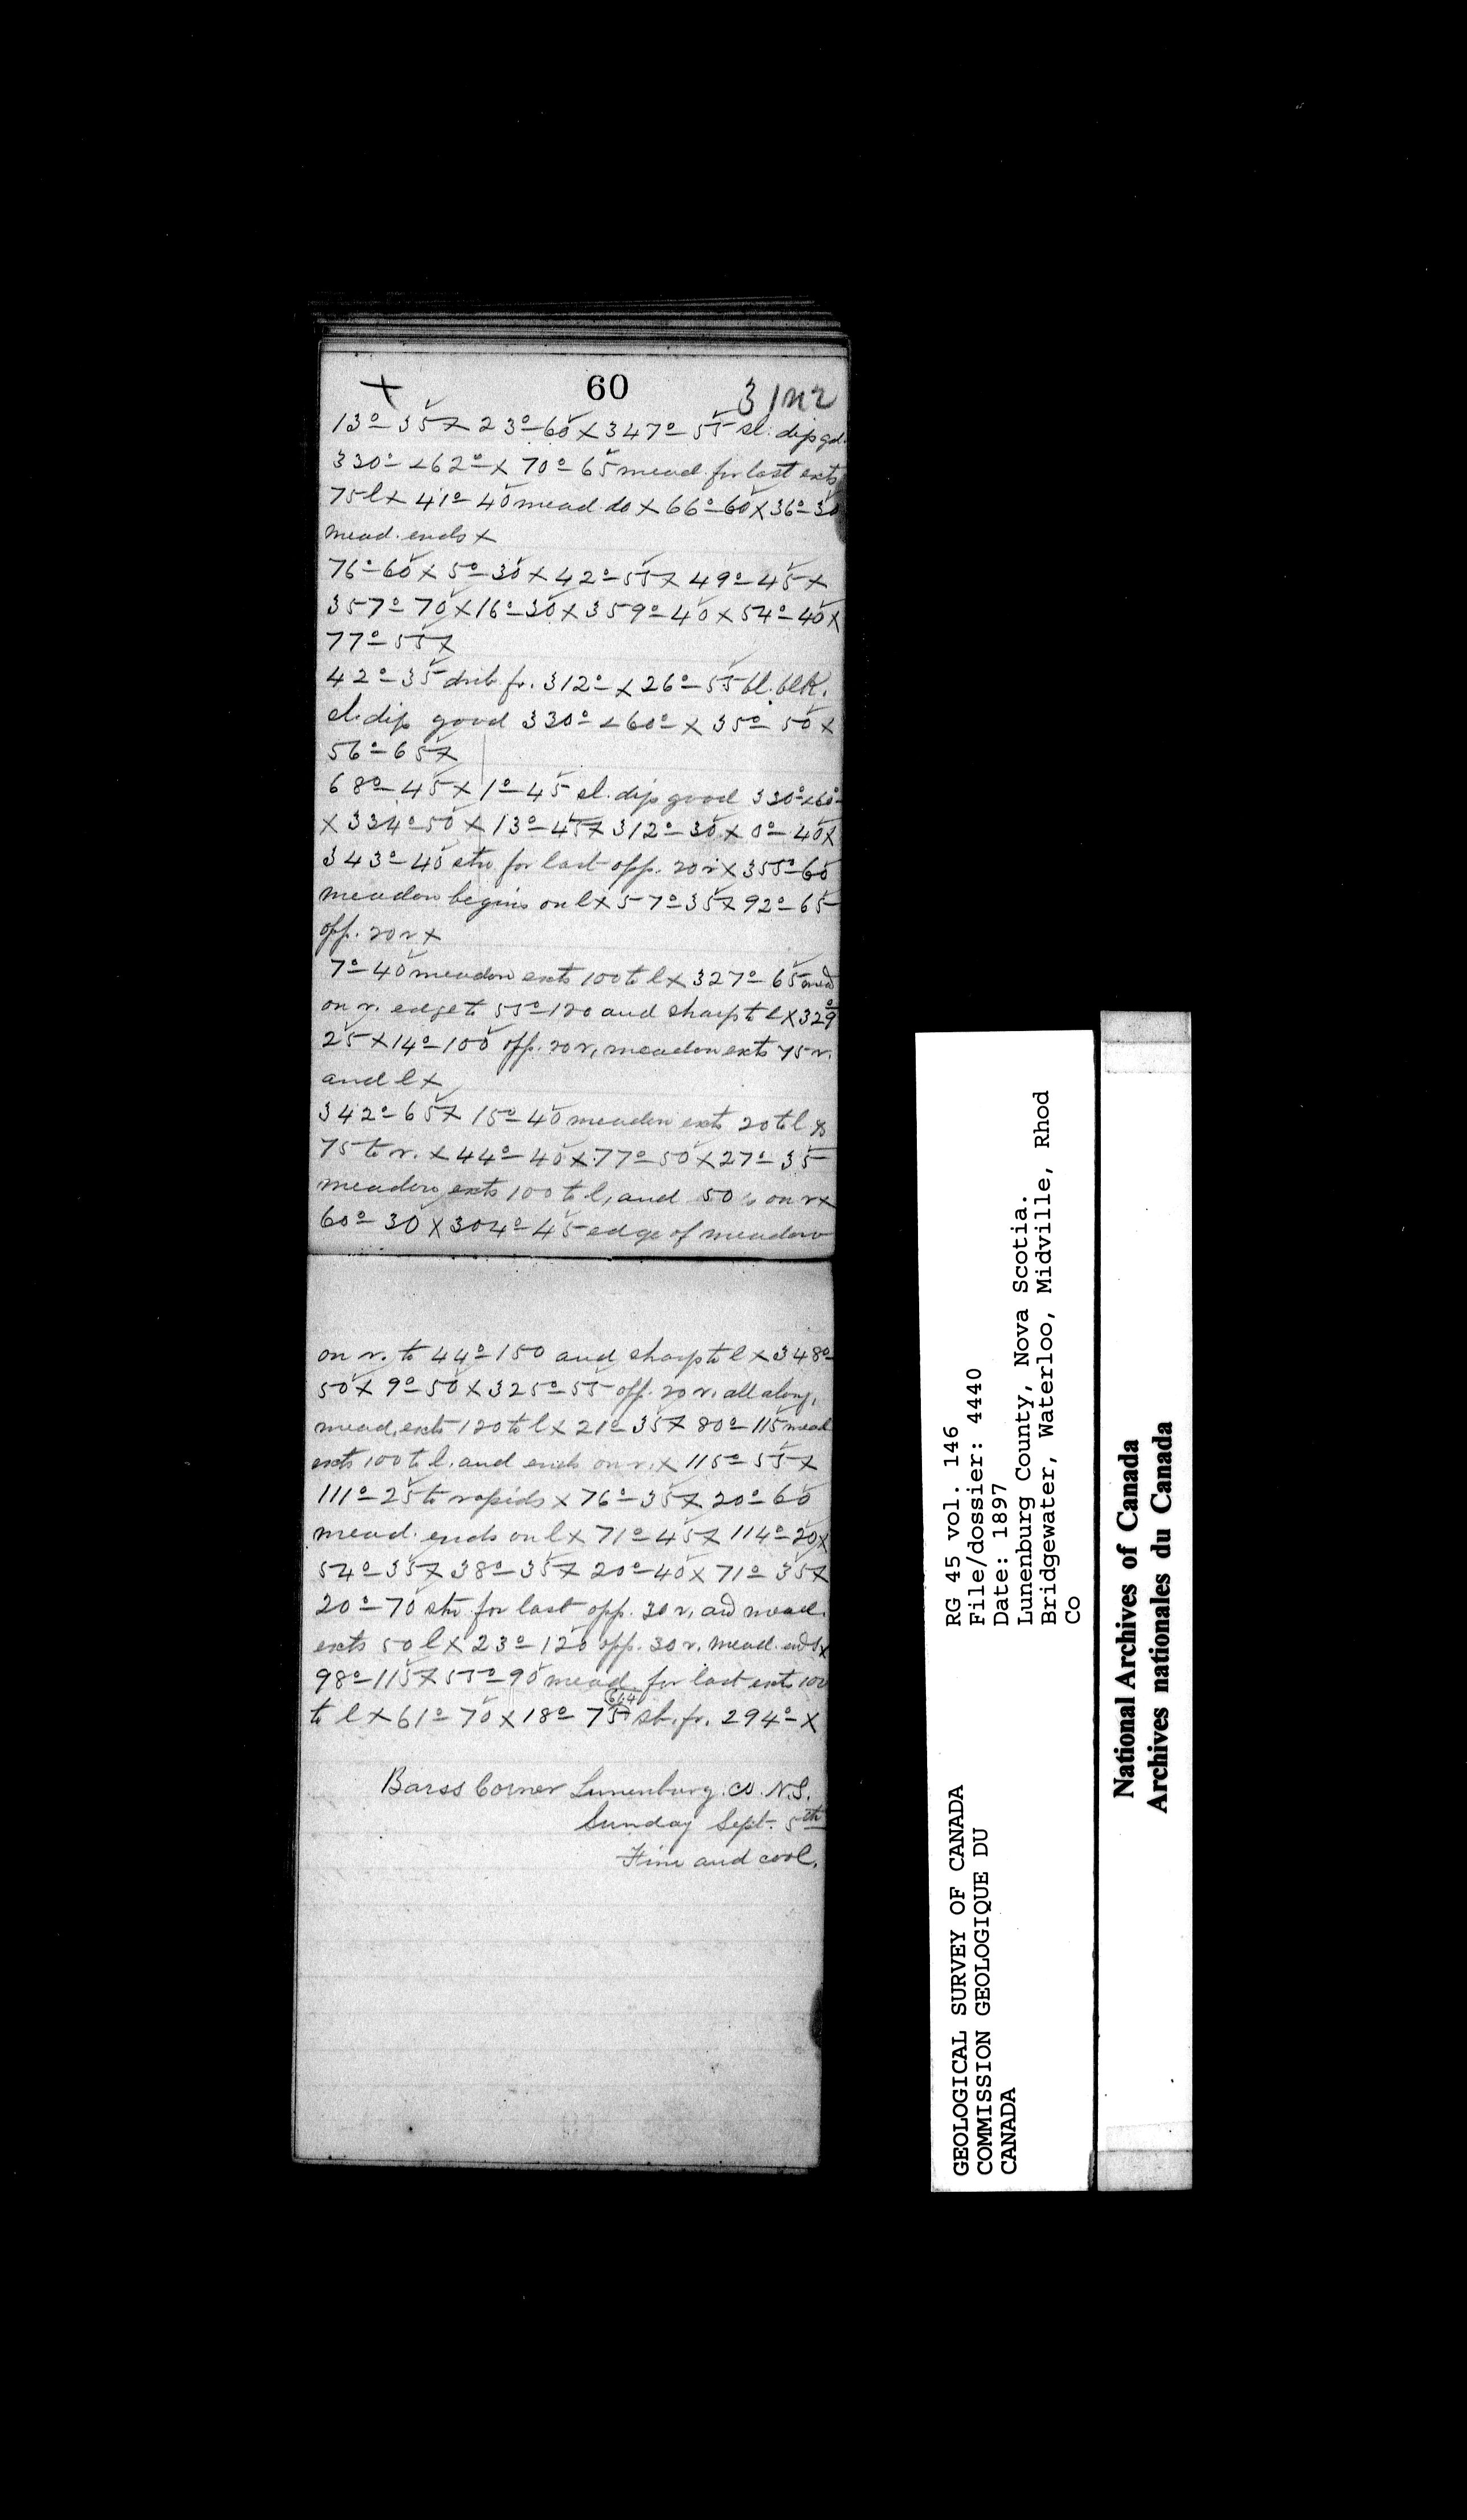 + 60
13° 35 × 23° 60 × 347° 55 sl. dip gd.
330° < 62° × 70° 65 mead. for last exts
75 l × 41° 40 mead. do × 66° 60 × 36° 30
mead. ends ×
76° 60 × 5° 30 × 42° 55 × 49° 45 ×
357° 70 × 16° 30 × 359° 40 × 54° 40 ×
77° 55 ×
42° 35 fr. 312° × 26° 55 bl. blk.
sl. dip good 330° < 60° × 35° 50 ×
56° 65 ×
68° 45 × 1° 45 sl. dip good 330° < 60°
× 334° 50 × 13° 45 × 312° 30 × 0° 40 ×
343° 40 str for last opp. 20 r × 355° 60
meadow begins on l × 57° 35 × 92° 65
opp. 20 r ×
7° 40 meadow exts 100 to l × 327° 65 mead
on r. edge to 55° 120 and sharp to l × 329°
25 × 14° 100 opp. 20 r, meadow exts 75 r.
and l ×
342° 65 × 15° 40 meadow exts 20 to l &
75 to r. × 44° 40 × 77° 50 × 27° 35
meadow exts 100 to l, and 50 on r ×
60° 30 × 304° 45 edge of meadow
on r. to 44° 150 and sharp to l × 348°
50 × 9° 50 × 325° 55 opp. 20 r. all along,
mead. exts 120 to l × 21° 35 × 80° 115 mead
exts 100 to l. and ends on r. × 115° 55 ×
111° 25 to rapids × 76° 35 × 20° 60
mead. ends on l × 71° 45 × 114° 20 ×
54° 35 × 38° 35 × 20° 40 × 71° 35 ×
20° 70 str for last opp. 30 r, and mead.
exts 50 l × 23° 120 opp. 30 r. mead. ends ×
98° 115 × 55° 90 mead for last exts 100
614
to l × 61° 70 × 18° 75 sb. fr. 294° ×
Barss Corner Lunenburg. Co. N.S.
Sunday Sept. 5th
Fine and cool.
GEOLOGICAL SURVEY OF CANADA
COMMISSION GEOLOGIQUE DU
CANADA
RG 45 vol. 146
File/dossier: 4440
Date: 1897
Lunenburg County, Nova Scotia.
Bridgewater, Waterloo, Midville, Rhod
Co
National Archives of Canada
Archives nationales du Canada